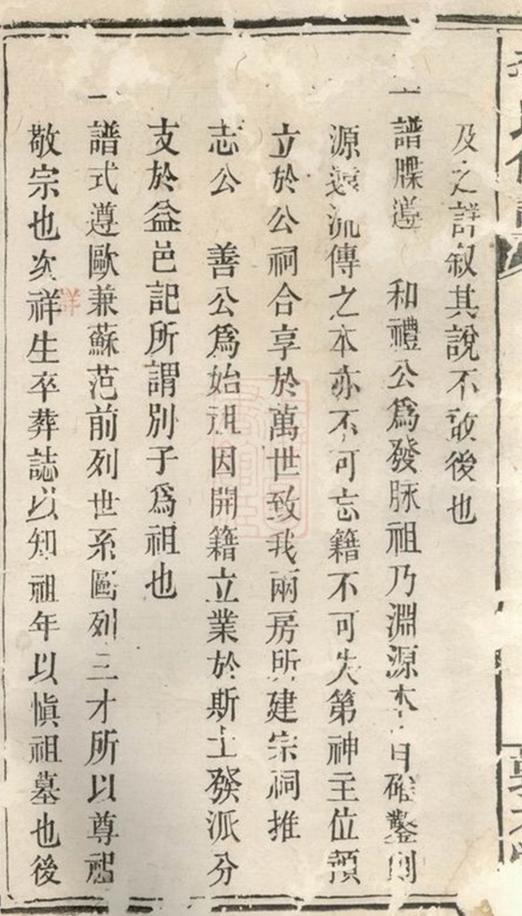 及之詳叙其說不敢後也
一譜牒遵 和禮公爲發脉祖乃淵源本 確鑿則
源遠流傳之本亦不可忘籍不可失第神主位預
立於公祠合享於萬世致我兩房所建宗祠推
志公 善公爲始祖因開籍立業於斯土發派分
支於益邑記所謂別子爲祖也
一譜式遵歐兼蘇范前列世系圖列三才所以尊祖
敬宗也次祥生卒葬誌以知祖年以愼祖墓也後
詳